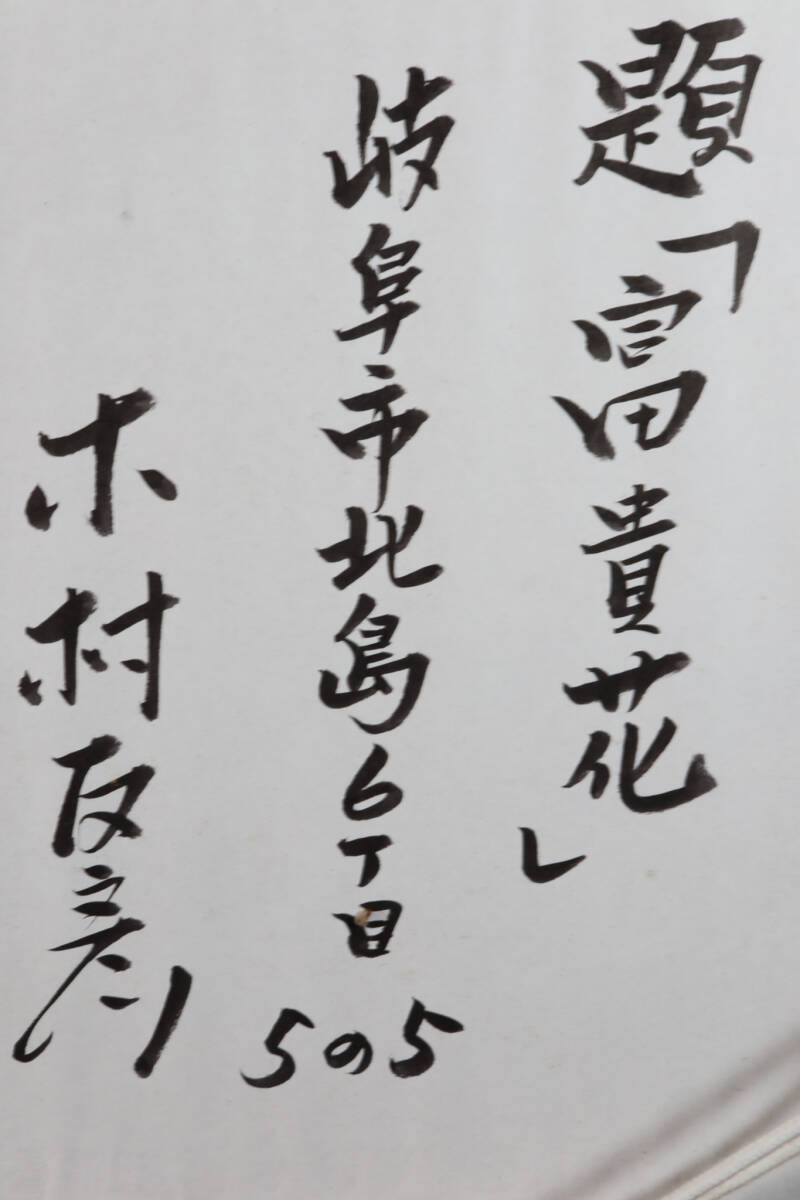 題「富貴花」
岐阜市北島6丁目
5の5
木村友彦